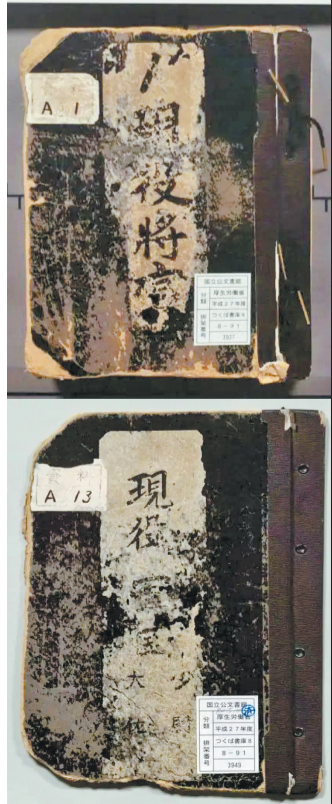 A 1
現役將官
国立公文書館
分類
厚生労働省
平成27年度
つくば書庫8
排架番号
8-91
3937
A 13
現役
大佐
国立公文書館
分類
厚生労働省
平成27年度
排架番号
つくば書庫8
8-91
3949